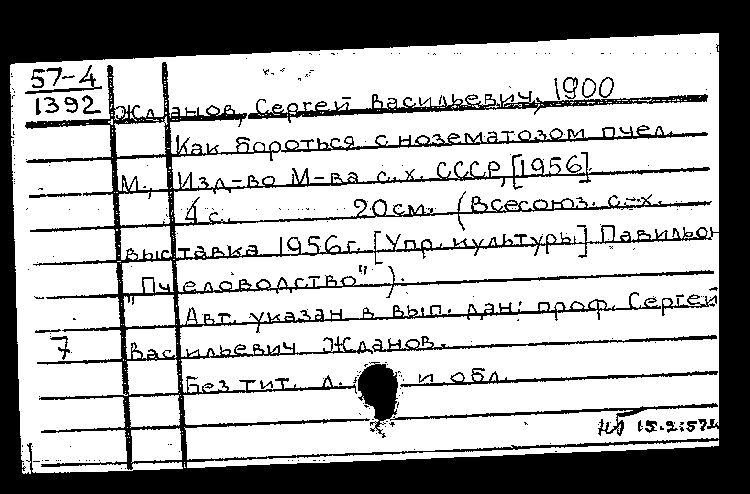 57-4
1392
Жданов, Сергей Васильевич, 1900
Как бороться с нозематозом пчел.
М., Изд-во М-ва с.х. СССР, [1956]
4 с. 20см. (Всесоюз. с.-х.
выставка 1956г. [Упр. культуры] Павильон
"Пчеловодство").
Авт. указан в вып. дан: проф. Сергей
7 Васильевич Жданов.
Без тит. л. и обл.
15.2.57г